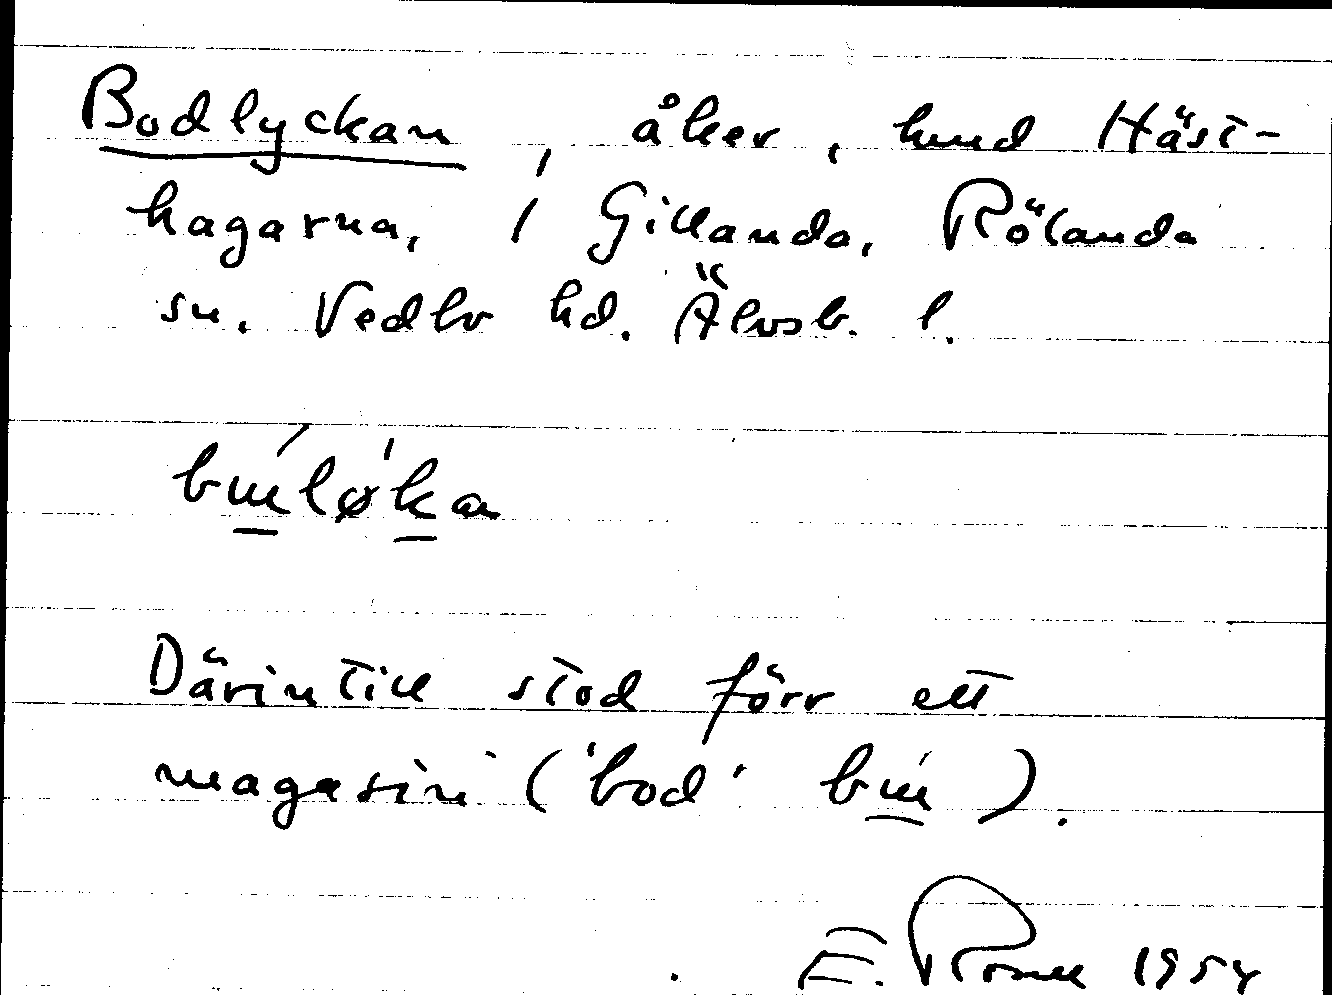 Bodlyckan, åker, hmd Häst-
hagarna, i Gillanda, Rölanda
sn. Vedbo hd. Älvsb. l.
bɯ́lø'kan
Därintill stod förr ett
magasin ('bod' bɯ́).
E. 1954